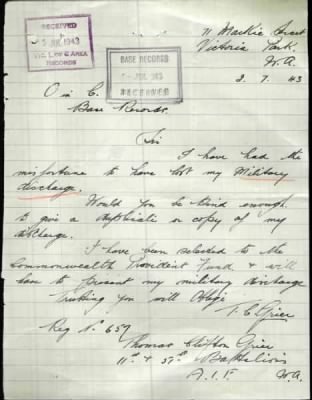 RECEIVED
JUL 1943
VIC. L. OF C. AREA
RECORDS
BASE RECORDS
JUL
RECEIVED
71 Mackie Street
Victoria Park.
W.A
3. 7. 43
O in C.
Base Records.
Sir
I have had the
misfortune to have lost my Military
discharge.
Would you be kind enough
to give a duplicate or copy of my
discharge.
I have been selected to the
Commonwealth Provident Fund & will
have to present my military discharge
Trusting you will Oblige
T. C Grier
Reg No 657
Thomas Clifton Grier
11th & 51st Battalions
A.I.F. W.A.